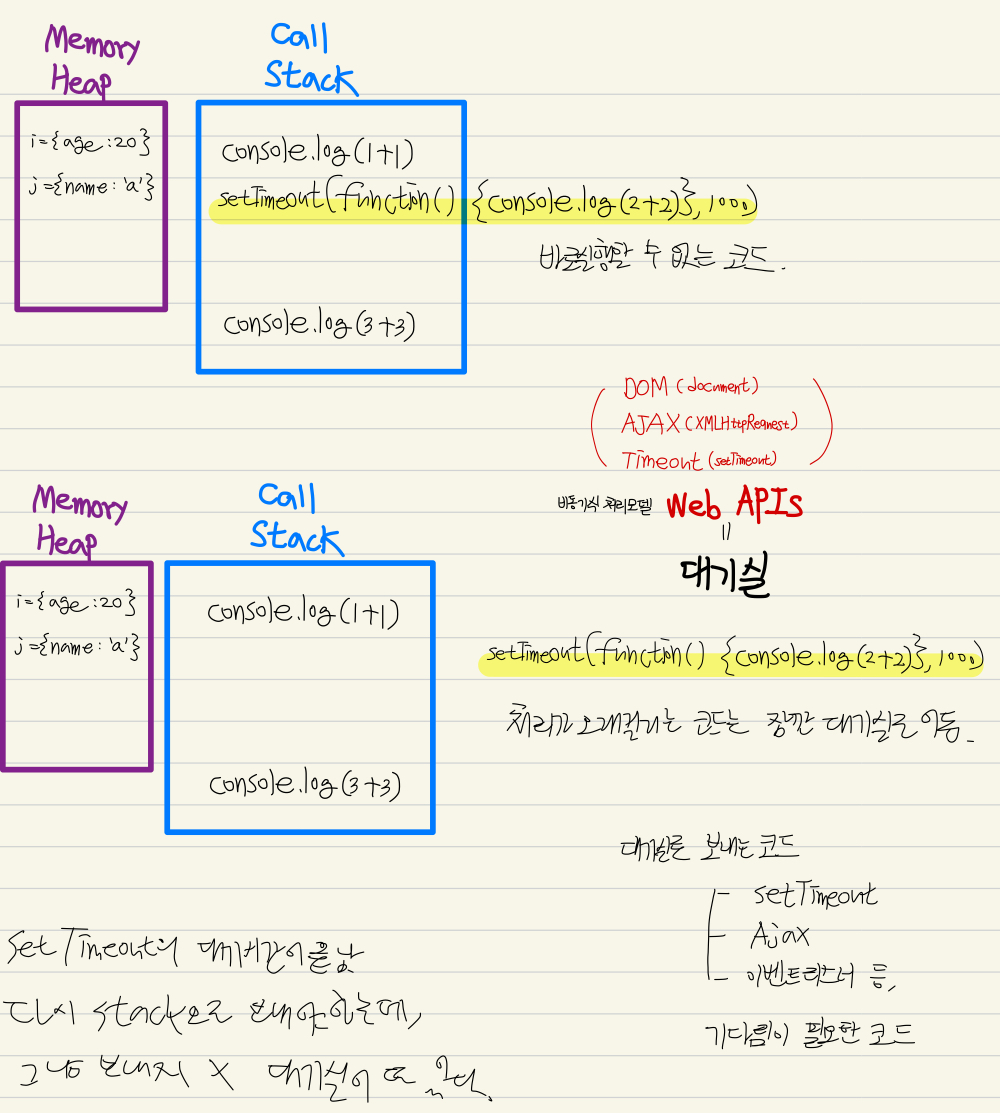 Memory
Heap
Call
Stack
i={age:20}
j={name:'a'}
console.log(1+1)
setTimeout(function() {console.log(2+2)}, 1000)
바로실행할 수 없는 코드.
console.log(3+3)
DOM (document)
AJAX (XMLHttpRequest)
Timeout (setTimeout)
비동기식 처리모델 Web APIs
=
대기실
Memory
Heap
Call
Stack
i={age:20}
j={name:'a'}
console.log(1+1)
setTimeout(function() {console.log(2+2)}, 1000)
처리가 오래걸리는 코드는 잠깐 대기실로 이동.
console.log(3+3)
대기실로 보내는 코드
setTimeout
Ajax
이벤트리스너 등,
기다림이 필요한 코드
SetTimeout의 대기시간이
다시 stack으로 보내야하는데,
그냥 보내지 X 대기실이 또 있다.